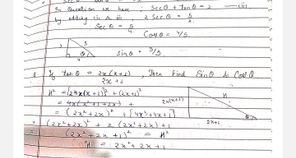 In Question we have ; Secθ + tanθ = 2 — (ii)
by adding (i) & (ii) , 2 Secθ = 5/2
Secθ = 5/4
Cosθ = 4/5
3 5 4 θ Sinθ = 3/5
If tanθ = 2x(x+1) / 2x+1 , Then find Sinθ & Cosθ
H² = [2x(x+1)]² + (2x+1)²
= 4x²(x+1)² +
= (2x²+2x)² + [4x²+4x+1]
2x(x+1) H
= (2x²+2x)² + 2(2x²+2x)+1
2x+1
(2x²+2x+1)² = H²
H = 2x²+2x+1